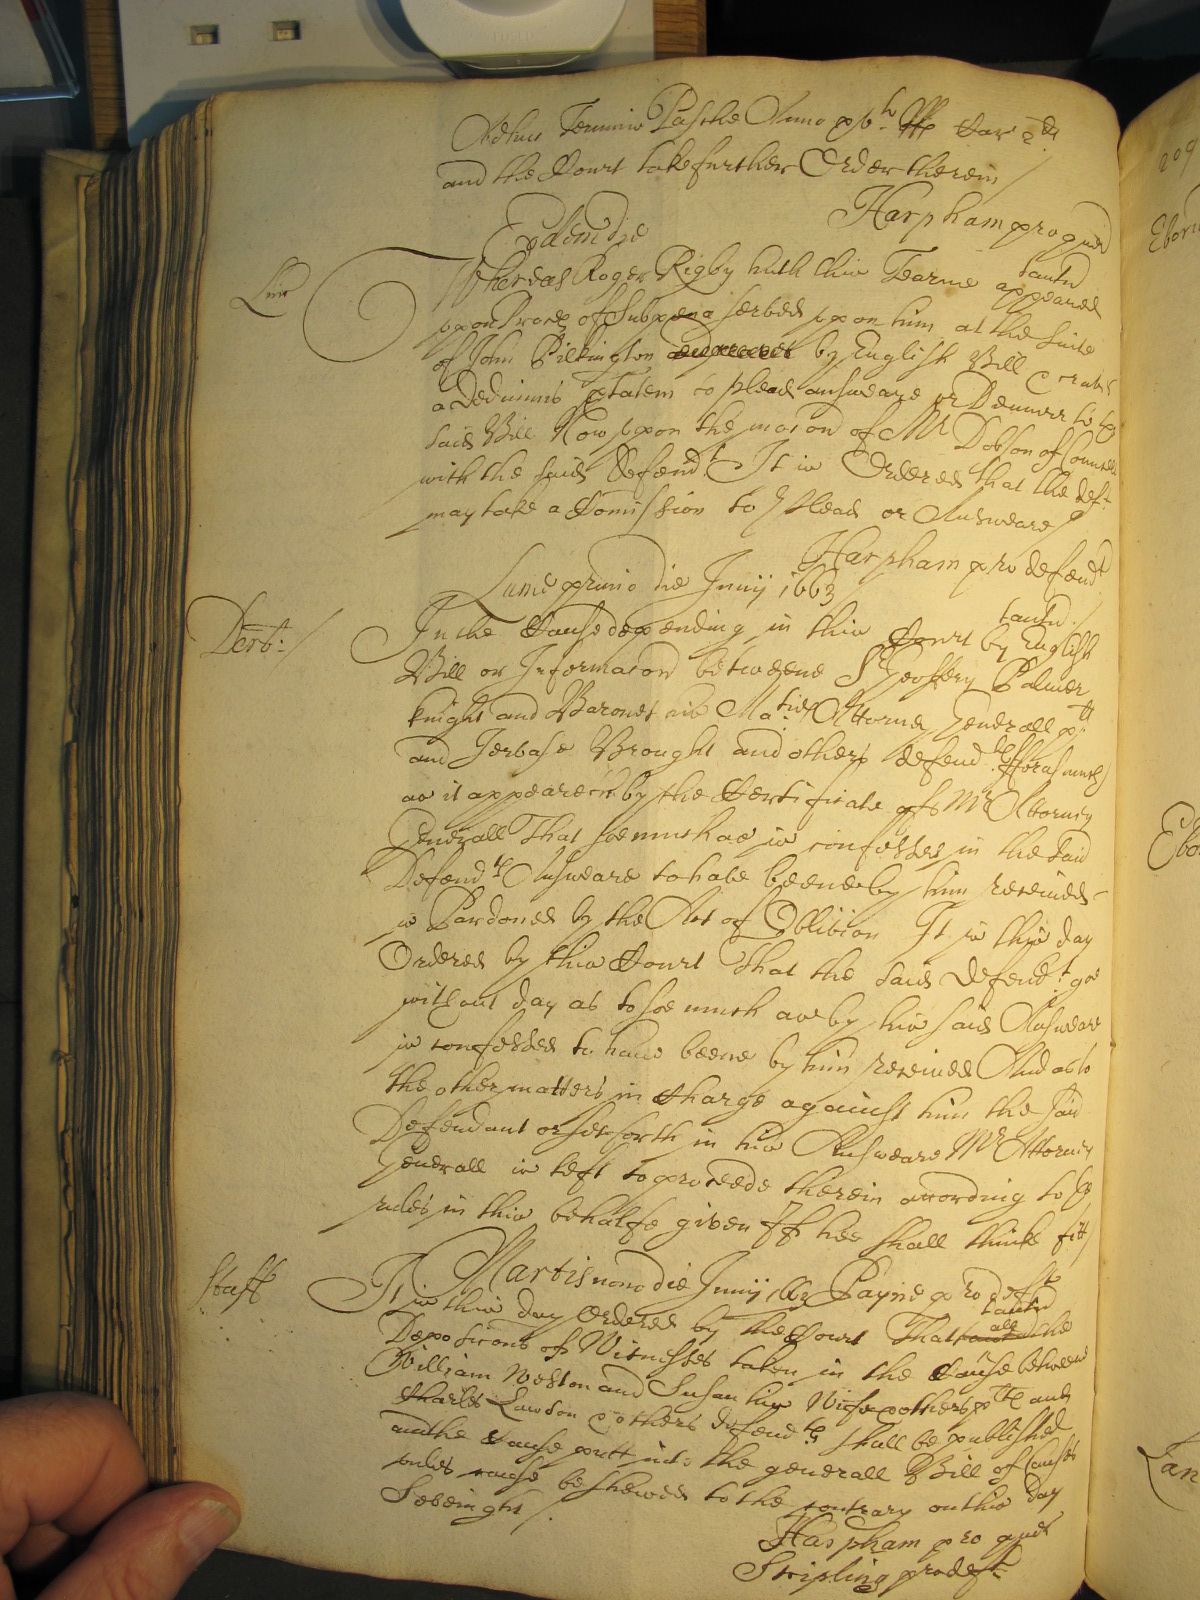 Octavis Termino Pasche Anno p[er] Car 2di
and the Court take further Order therein
Harpham pro quer
Eodem die
Linc Whereas Roger Rigby hath this Tearme tantu appeared
upon Proces of Subpena served upon him at the suite
of John Pilkington by English Bill Craves
a Dedimus ptatem to plead answeare or Demurr to the
said Bill Now upon the mocon of Mr Dobson of Councell
with the said Defendt It is Ordered that the deft
may take a Comission to Plead or Answeare
Harpham pro defend
Lune primo die Junij 1663
tantu
Derb: In the Cause depending in this Court by English
Bill or Informacon betweene Sr Geoffery Palmer
knight and Baronet his Maties Attorney Generall pt
and Jervase Brought and others defendts fforasmuch
as it appeareth by the Certificate of Mr Attorney
Generall That soe much as is confessed in the said
Defendts Answeare to have beene by him received
is Pardoned by the Act of Oblivion It is this day
Ordered by this Court That the said Defendt goe
without day as to soe much as by his said Answeare
is confessed to have beene by him received And as to
the other matters in charge against him the said
Defendant or set forth in his Answeare Mr Attorney
Generall is left to proceede therein according to the
rules in this behalfe given If hee shall thinke fitt
Martis nono die Junij Payne pro defte
tantu
Staff It is this day Ordered by the Court That all the
Deposicons of Witnesses taken in the Cause betweene
William Weston and Susan his Wife & others pts and
Charles Lawson & others defendts shall be published
and the Cause putt into the generall Bill of Causes
unles cause be shewed to the contrary on this day
Seveinght
Harpham pro quer
Stripling pro deft
209
Ebor
Ebo
Lan